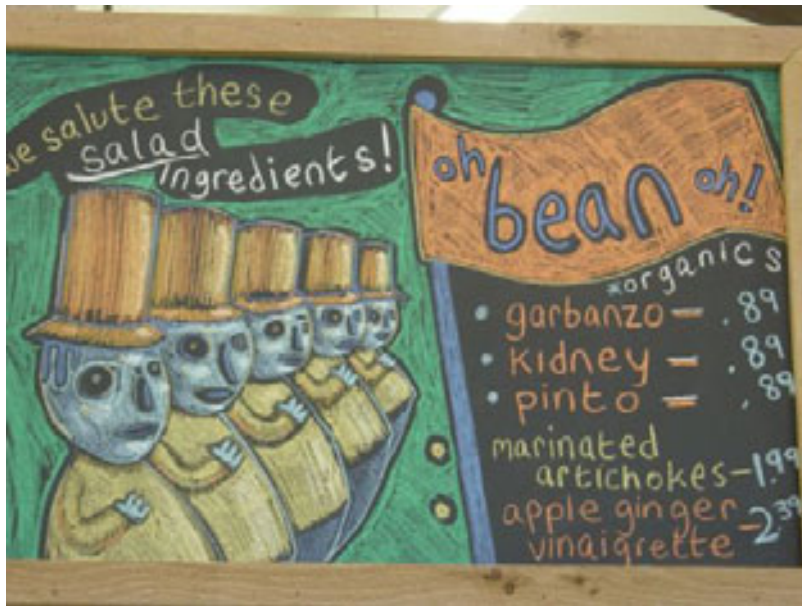 we salute these
salad
ingredients!
oh bean oh!
*organics
• garbanzo - .89
• kidney - .89
• pinto - .89
marinated
artichokes - 1.99
apple ginger
vinaigrette - 2.39